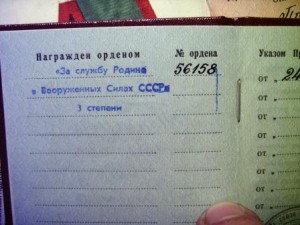 Награжден орденом № ордена Указом Пр
«За службу Родине 56158 от 24
в Вооруженных Силах СССР»
3 степени
от
от
от
от
от
от